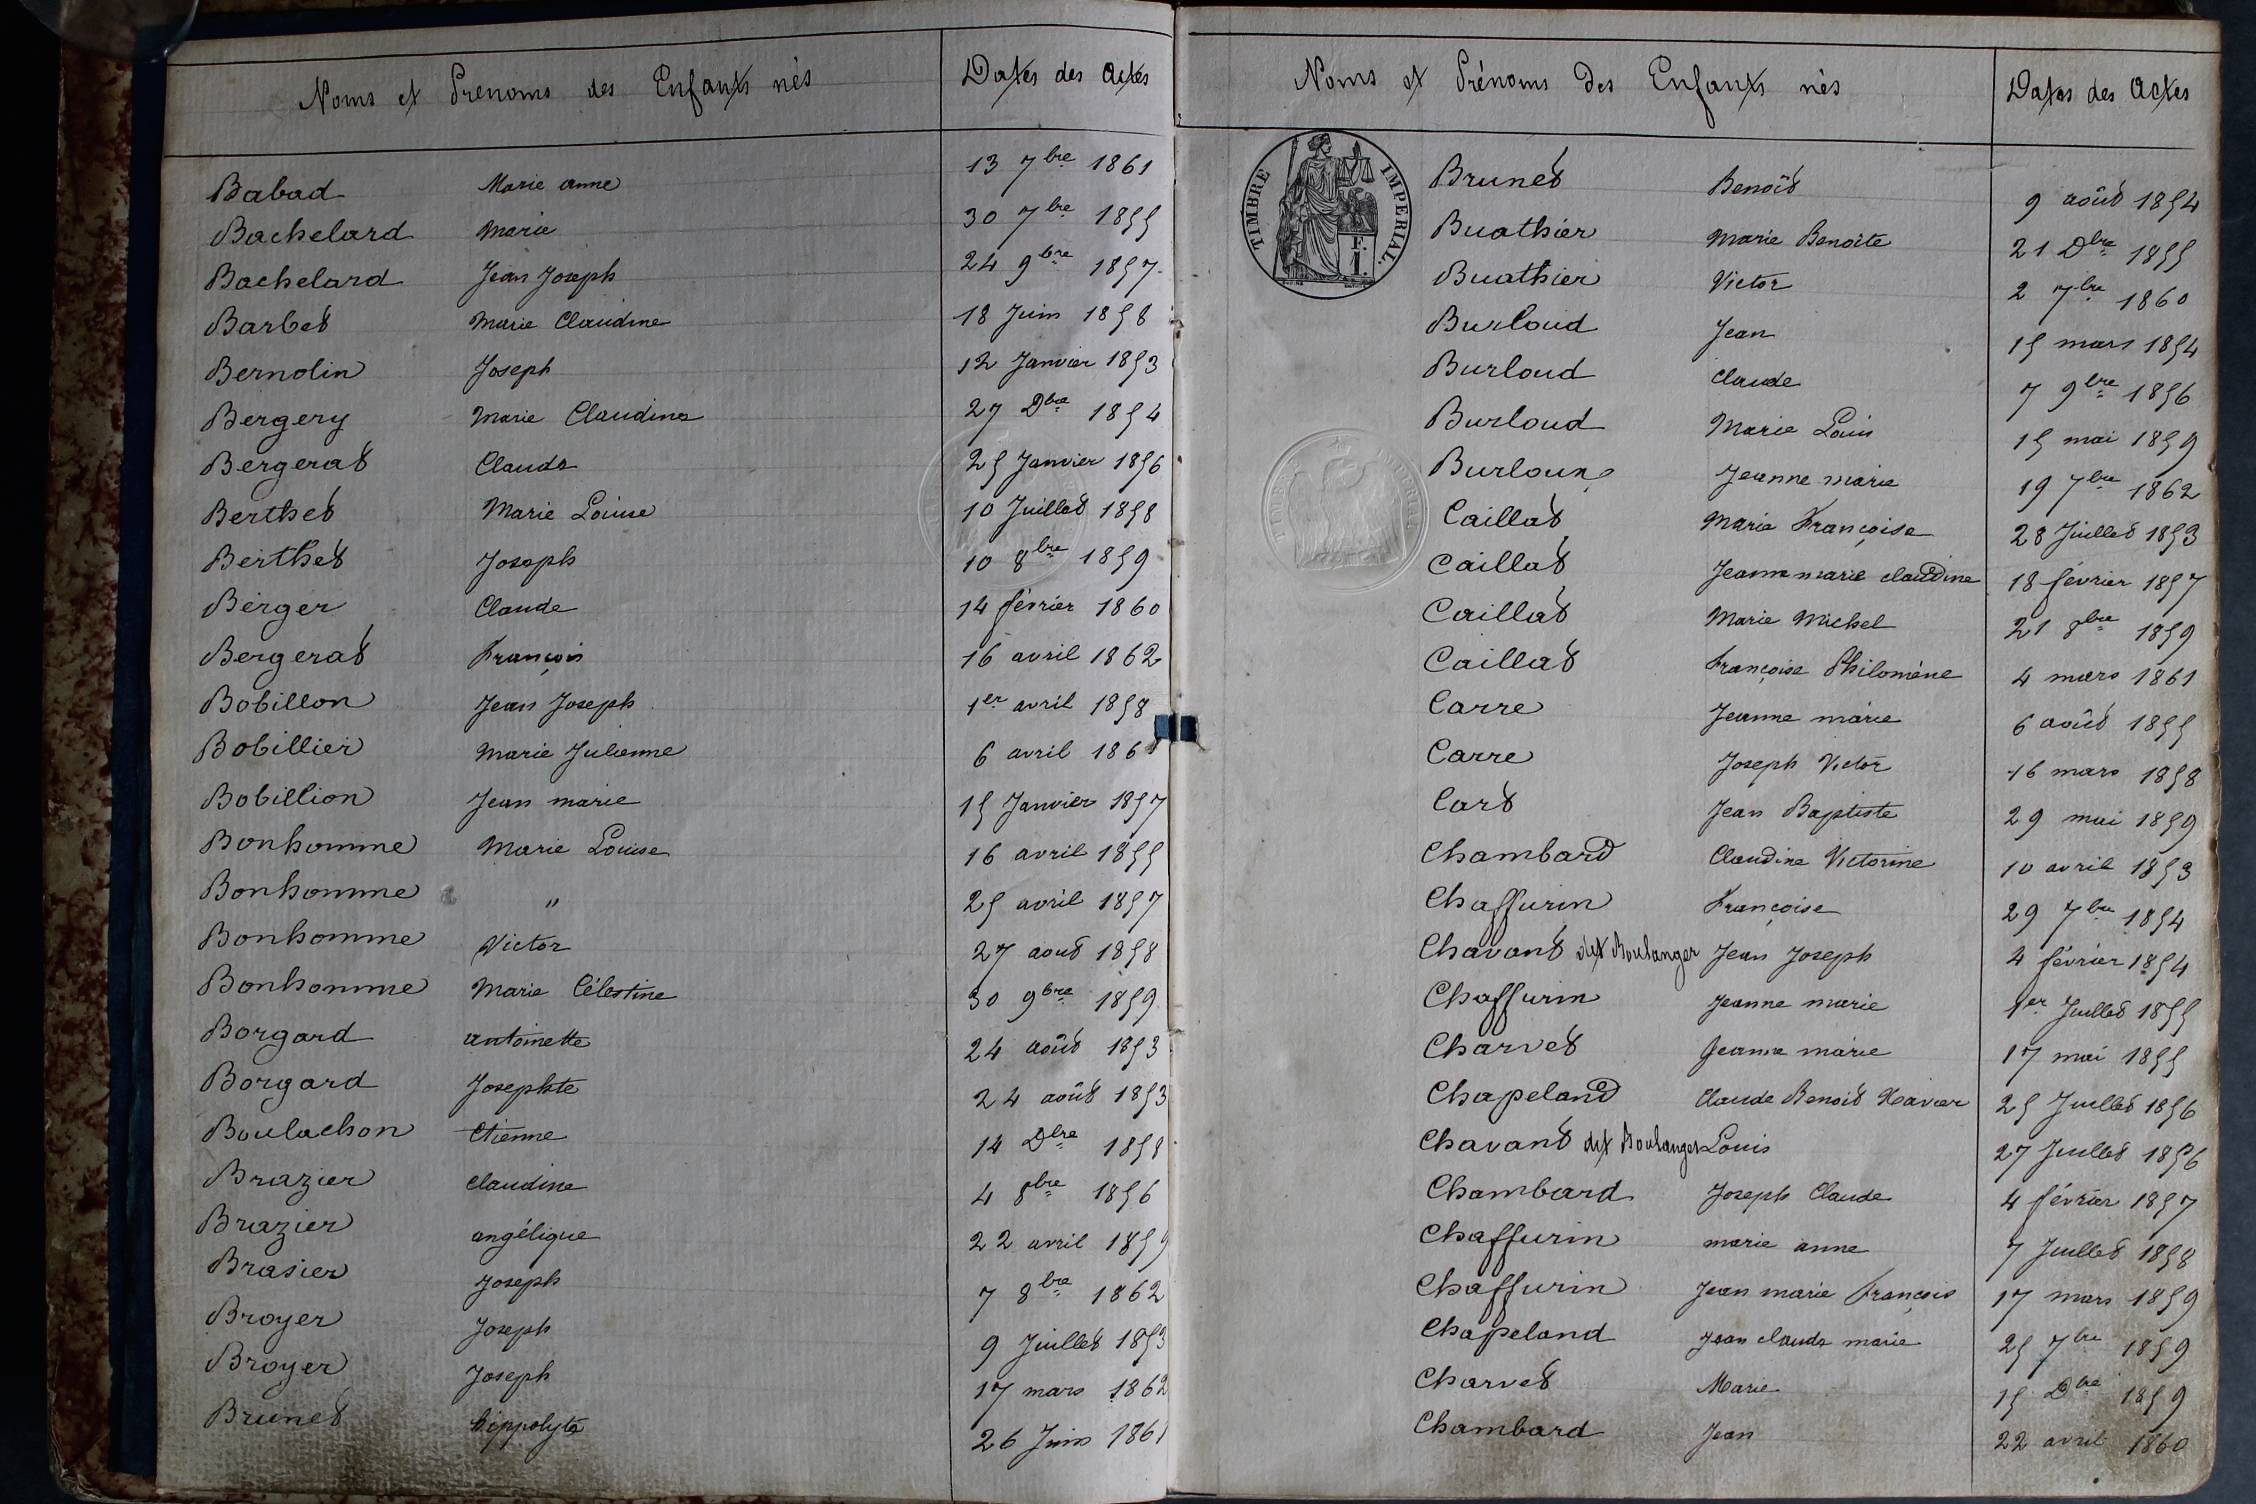 Noms et Prenoms des Enfants nés Dates des Actes
Babad Marie anne 13 7bre 1861
Bachelard Marie 30 7bre 1855
Bachelard Jean Joseph 24 9bre 1857
Barbet Marie Claudine 18 Juin 1858
Bernolin Joseph 12 Janvier 1853
Bergery Marie Claudine 27 Dbre 1854
Bergerat Claude 25 Janvier 1856
Berthet Marie Louise 10 Juillet 1858
Berthet Joseph 10 8bre 1859
Berger Claude 14 février 1860
Bergerat François 16 avril 1862
Bobillon Jean Joseph 1er avril 1858
Bobillier Marie Julienne 6 avril 186
Bobillion Jean marie 15 Janvier 1857
Bonhomme Marie Louise 16 avril 1855
Bonhomme " 25 avril 1857
Bonhomme Victor 27 aout 1858
Bonhomme Marie Célestine 30 9bre 1859
Borgard antoinette 24 août 1853
Borgard Josephte 24 août 1853
Boulachon Etienne 14 Dbre 1858
Brazier claudine 4 8bre 1856
Brazier angélique 22 avril 1859
Brasier Joseph 7 8bre 1862
Broyer Joseph 9 Juillet 1853
Broyer Joseph 17 mars 1862
Brunet hippolyte 26 Juin 1861
Noms et Prénoms des Enfants nés Dates des Actes
TIMBRE IMPERIAL.
Brunet Benoît 9 août 1854
Buathier Marie Benoîte 21 Dbre 1855
Buathier Victor 2 7bre 1860
Burloud Jean 15 mars 1854
Burloud Claude 7 9bre 1856
Burloud Marie Louis 15 mai 1859
Burloud Jeanne marie 19 7bre 1862
Caillat Marie Françoise 28 Juillet 1853
Caillat Jeanne marie claudine 18 février 1857
Caillat Marie Michel 21 8bre 1859
Caillat Françoise Philomène 4 mars 1861
Carre Jeanne marie 6 août 1855
Carre Joseph Victor 16 mars 1858
Cart Jean Baptiste 29 mai 1859
Chambard Claudine Victorine 10 avril 1853
Chaffurin Françoise 29 7bre 1854
Chavant dit Boulanger Jean Joseph 4 février 1854
Chaffurin Jeanne marie 1er Juillet 1855
Charvet Jeanne marie 17 mai 1855
Chapeland Claude Benoit Xavier 25 Juillet 1856
Chavant dit Boulanger Louis 27 Juillet 1856
Chambard Joseph Claude 4 février 1857
Chaffurin marie anne 7 Juillet 1858
Chaffurin Jean marie François 17 mars 1859
Chapeland Jean claude marie 25 7bre 1859
Charvet Marie 15 Dbre 1859
Chambard Jean 22 avril 1860